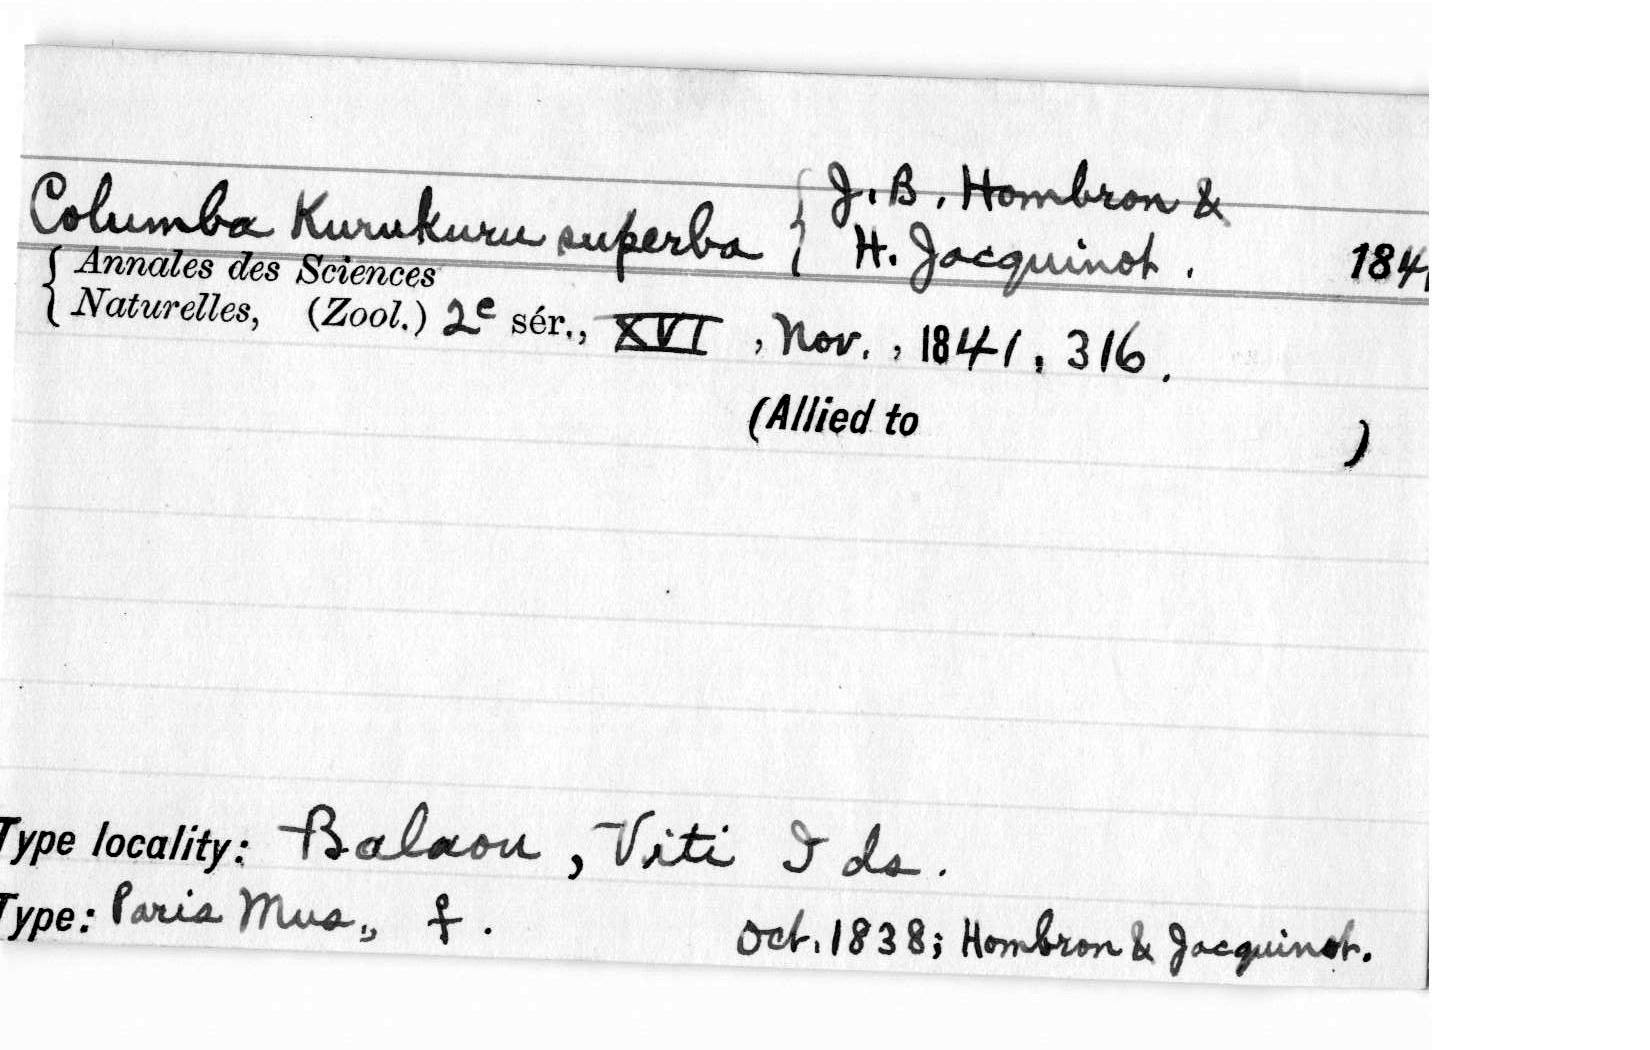 Columba Kurukuru superba { J. B. Hombron &
H. Jacquinot. 1841
{ Annales des Sciences
Naturelles, (Zool.) 2e sér., XVI, Nov., 1841, 316.
(Allied to )
Type locality: Balaou, Viti Ids.
Type: Paris Mus., ♀. Oct. 1838; Hombron & Jacquinot.